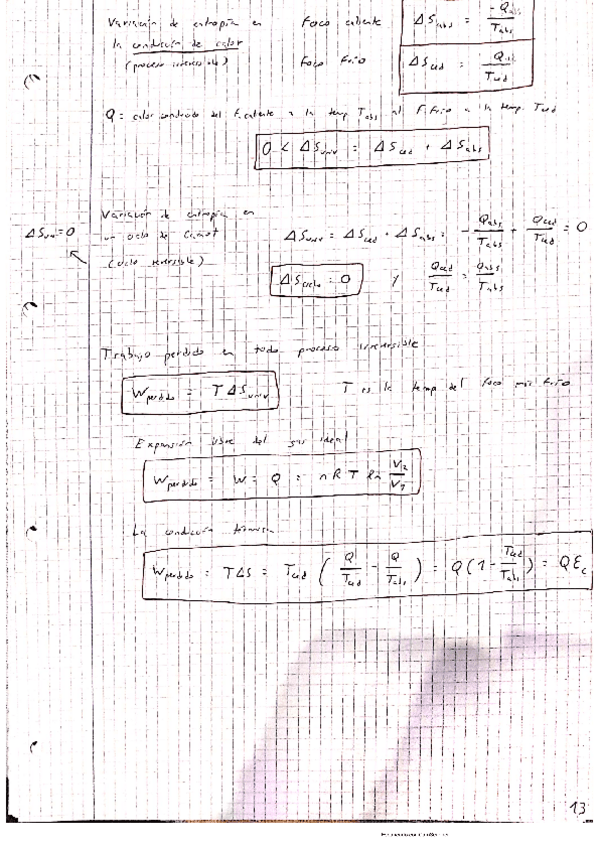 Variación de entropía en Foco caliente ΔS_abs = -Q_abs / T_abs
la conducción de calor
(proceso irreversible) Foco frío ΔS_ced = Q_ced / T_ced
Q = calor conducido del F. caliente a la temp. T_abs al F. Frío a la temp. T_ced
0 < ΔS_univ = ΔS_ced + ΔS_abs
Variación de entropía en
ΔS_univ = 0 un ciclo de Carnot ΔS_univ = ΔS_ced + ΔS_abs = - Q_abs / T_abs + Q_ced / T_ced = 0
(ciclo reversible) ΔS_ciclo = 0 y Q_ced / T_ced = Q_abs / T_abs
Trabajo perdido en todo proceso irreversible
W_perdido = T ΔS_univ T es la temp del foco más frío
Expansión libre del gas ideal
W_perdido = W = Q = n R T ln V_2 / V_1
La conducción térmica
W_perdido = TΔS = T_ced ( Q / T_ced - Q / T_abs ) = Q (1 - T_ced / T_abs) = Q ε_c
13